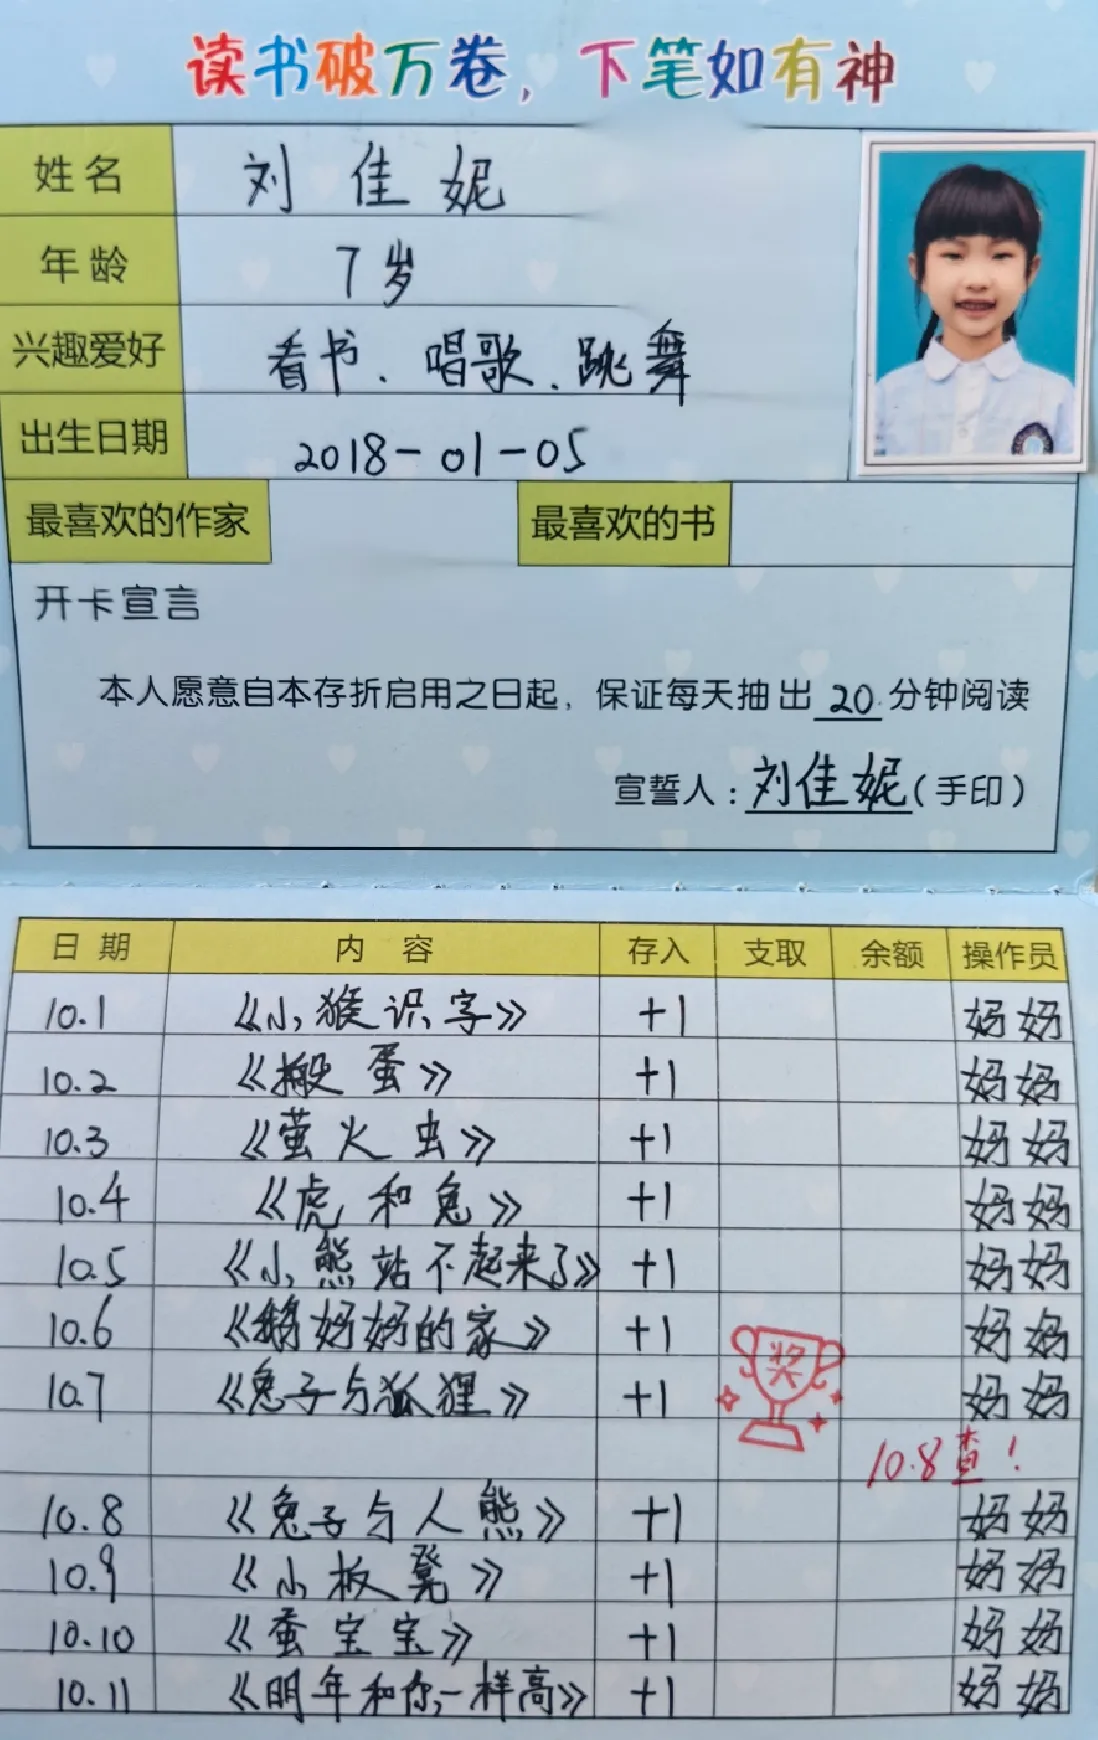 读书破万卷，下笔如有神
姓名 刘佳妮
年龄 7岁
兴趣爱好 看书、唱歌、跳舞
出生日期 2018-01-05
最喜欢的作家 最喜欢的书
开卡宣言
本人愿意自本存折启用之日起，保证每天抽出 20 分钟阅读
宣誓人：刘佳妮（手印）
日期 内容 存入 支取 余额 操作员
10.1 《小猴识字》 +1 妈妈
10.2 《搬蛋》 +1 妈妈
10.3 《萤火虫》 +1 妈妈
10.4 《虎和兔》 +1 妈妈
10.5 《小熊站不起来了》 +1 妈妈
10.6 《鹅妈妈的家》 +1 妈妈
10.7 《兔子与狐狸》 +1 奖 妈妈
10.8查！
10.8 《兔子与人熊》 +1 妈妈
10.9 《小板凳》 +1 妈妈
10.10 《蚕宝宝》 +1 妈妈
10.11 《明年和你一样高》 +1 妈妈